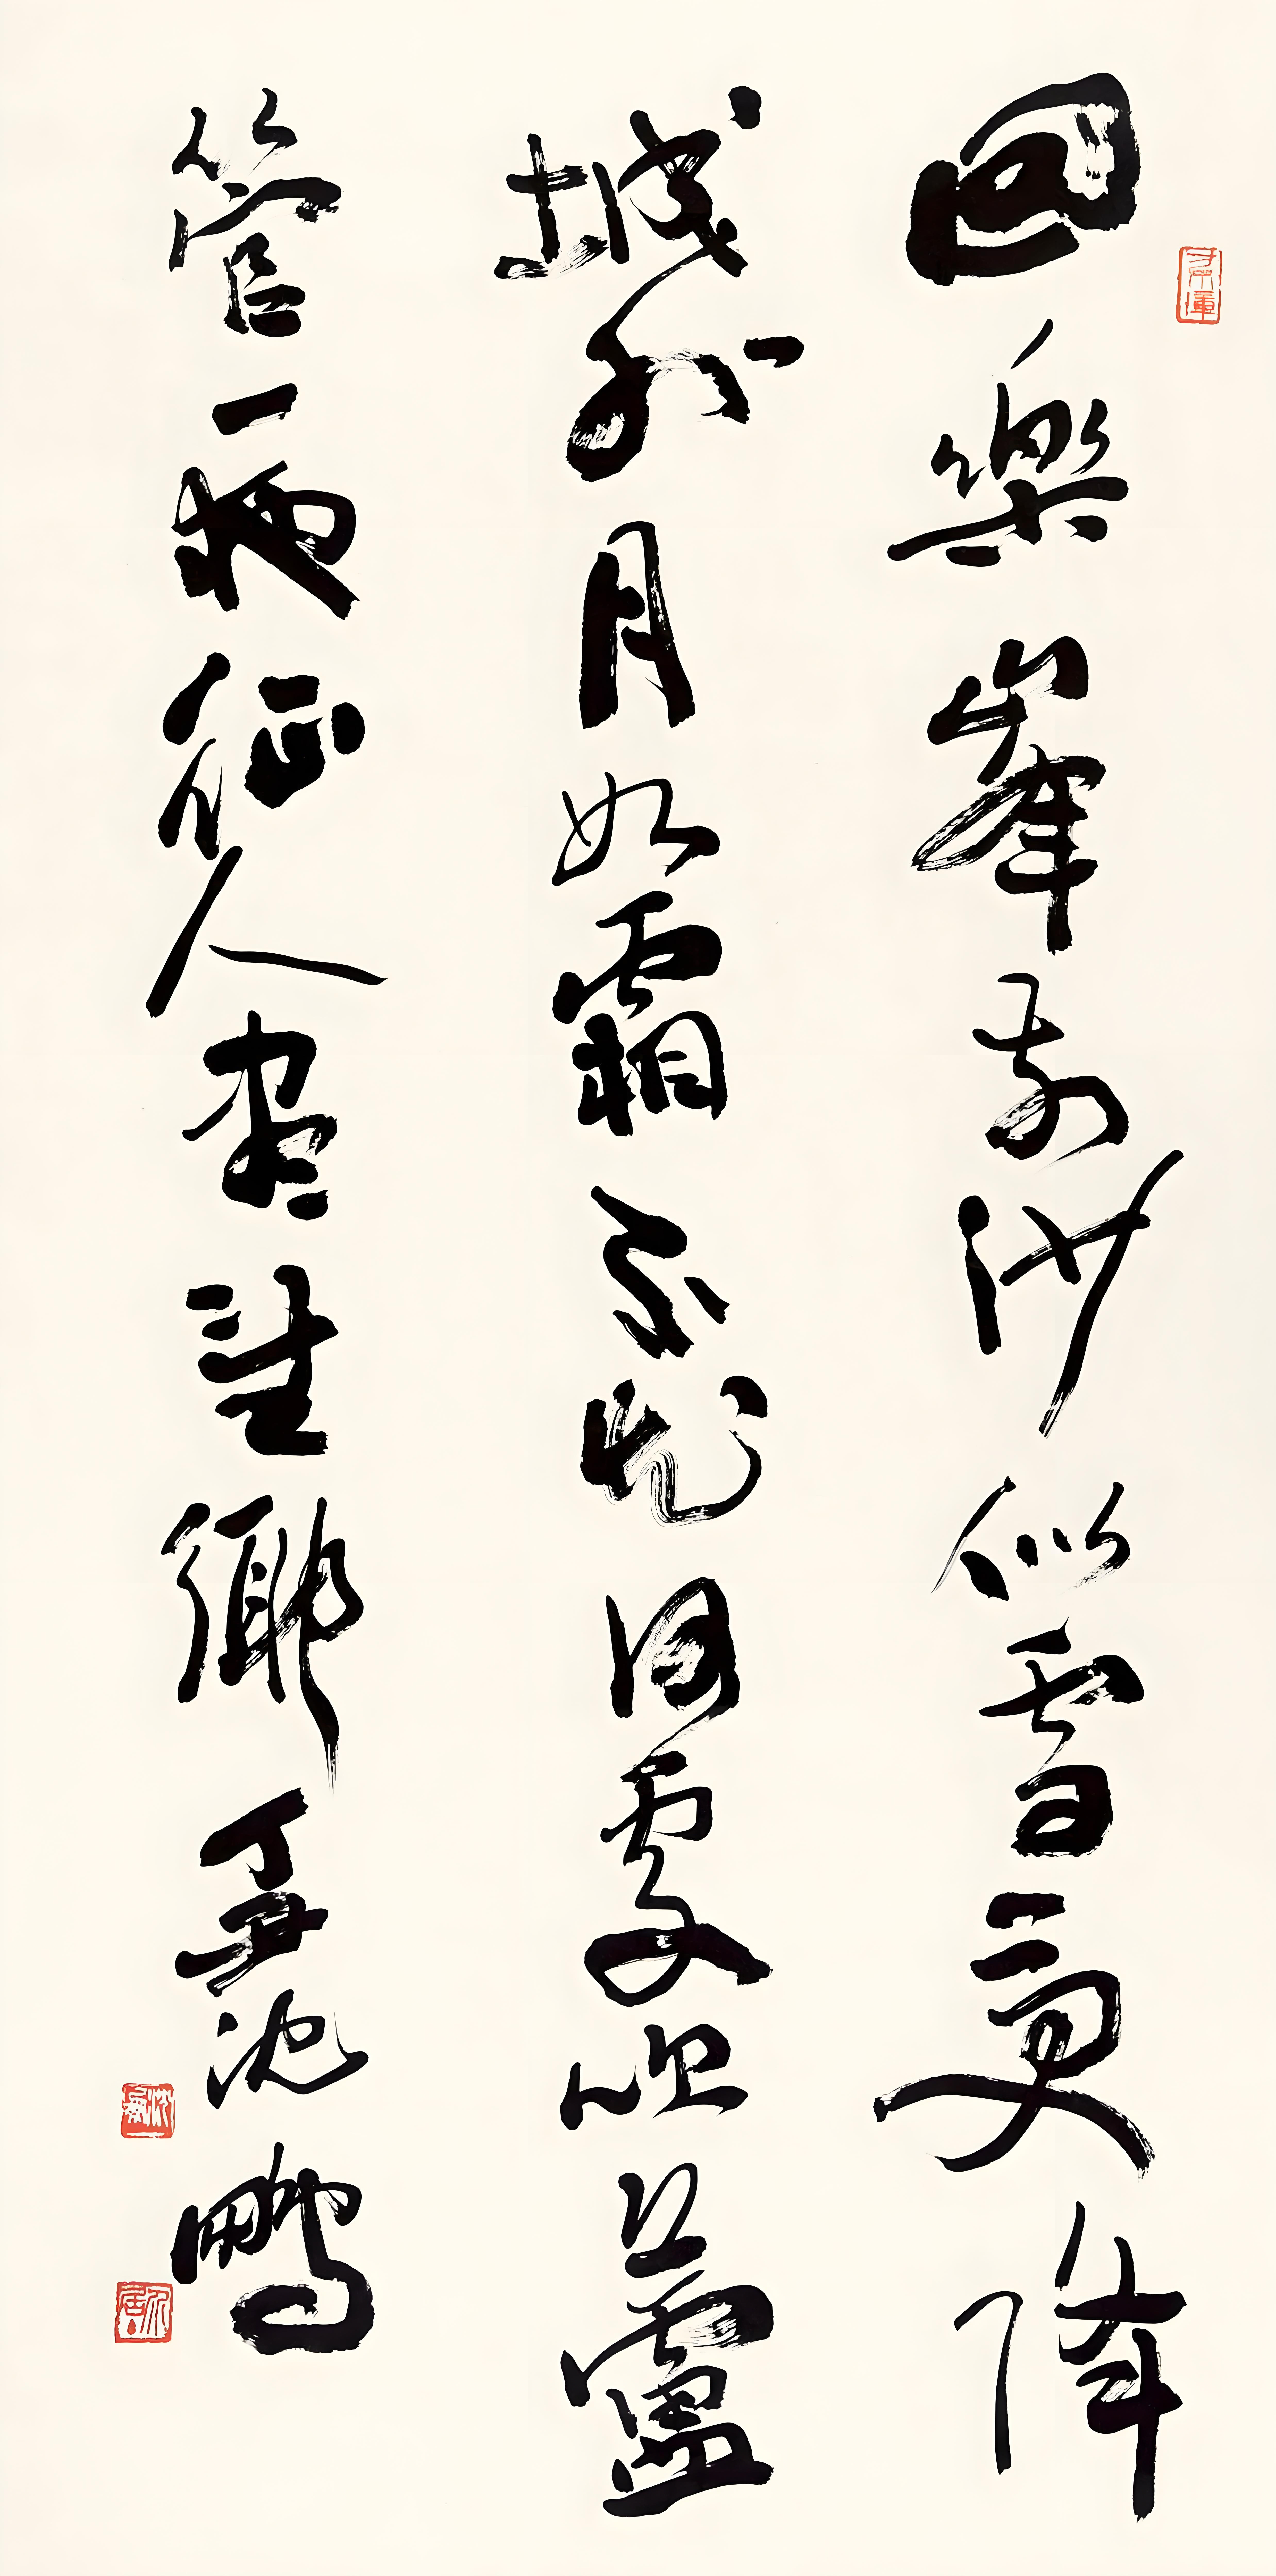 回樂峯前沙似雪受降
城外月如霜不知何處吹蘆
管一夜征人盡望鄉丁丑沈鵬